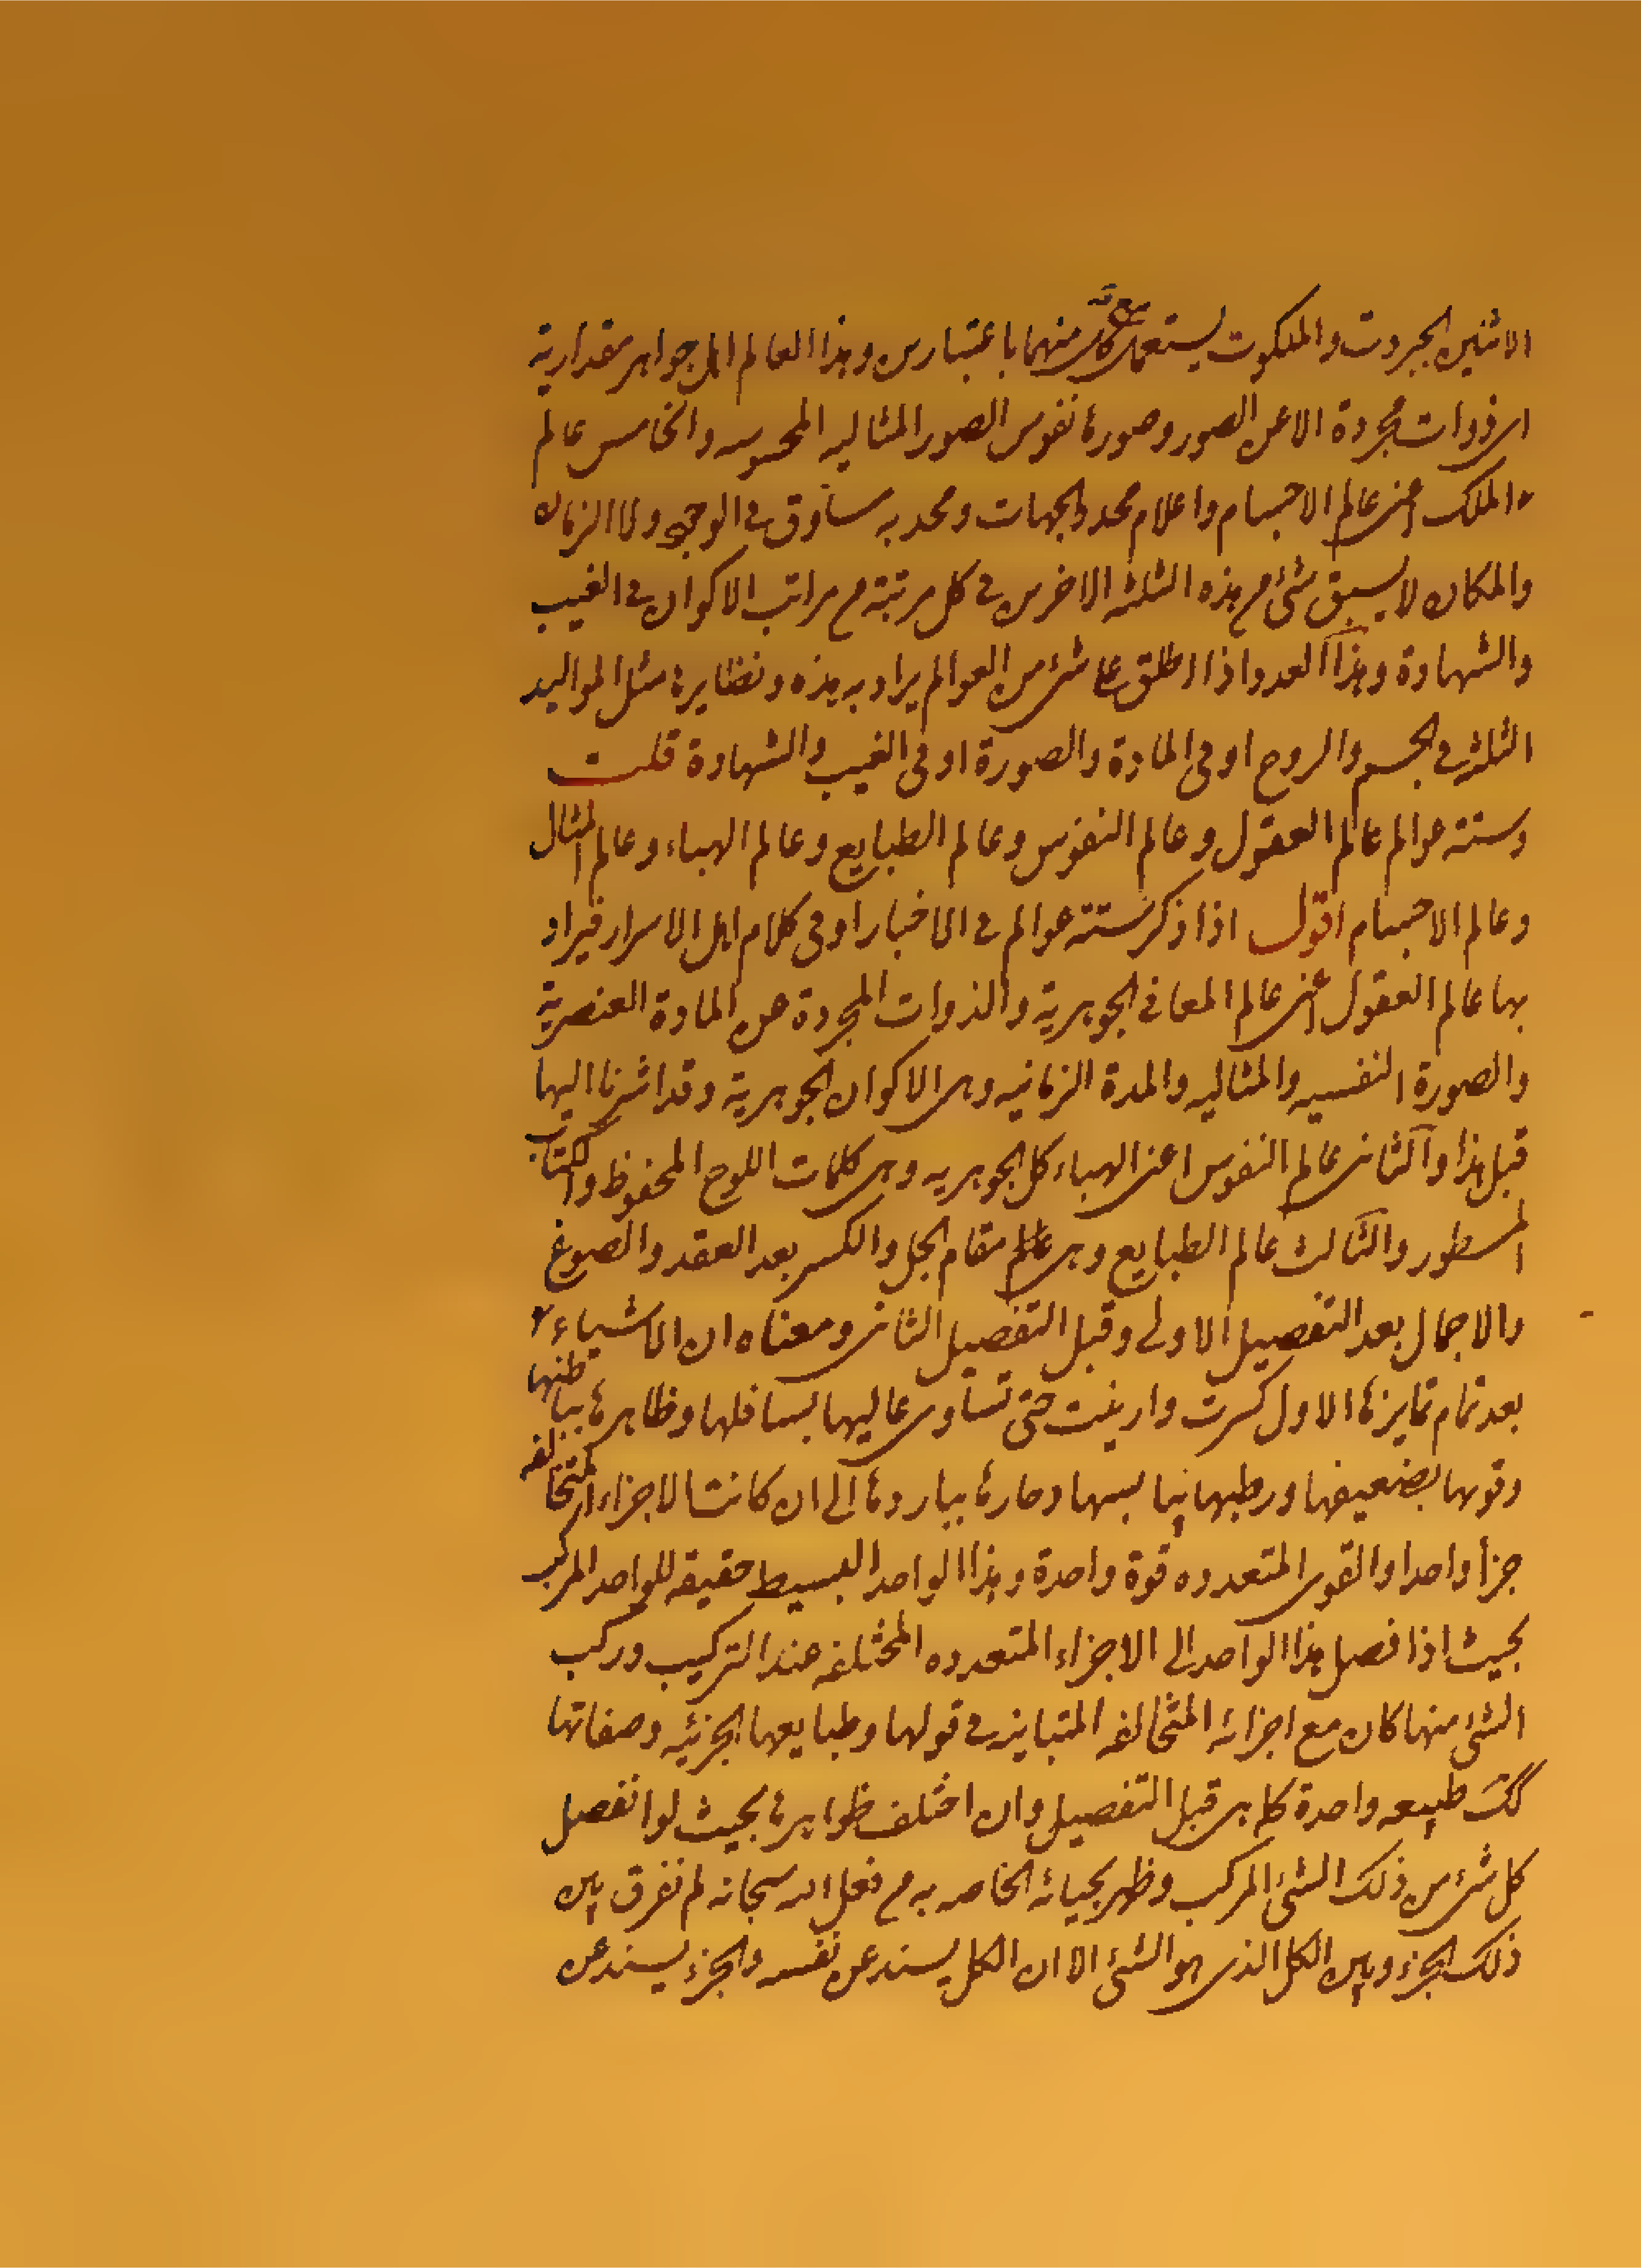 الاثنين الجبروت والملكوت يستعمل كل منهما باعتبارين وهذا العالم اهل جواهر مقدارية
اى ذوات مجردة الا عن الصور وصورها نفوس الصور المثاليه المحسوسه والخامس عالم
الملك اعنى عالم الاجسام واعلام محدد الجهات ومحدبه ساوق فى الوجود ولا الزمان
والمكان لا يسبق شئ من هذه الثلثه الاخرين فى كل مرتبة من مراتب الاكوان فى الغيب
والشهادة وهذا العدد اذا اطلق على شئ من العوالم يراد به هذه ونظايرها مثل المواليد
الثلثه فى الجسم والروح او فى المادة والصورة او فى الغيب والشهادة قلت
وستة عوالم عالم العقول وعالم النفوس وعالم الطبايع وعالم الهباء وعالم المثال
وعالم الاجسام اقول اذا ذكر ستة عوالم فى الاخبار او فى كلام اهل الاسرار فيراد
بها عالم العقول اعنى عالم المعانى الجوهرية والذوات المجردة عن المادة العنصرية
والصورة النفسيه والمثاليه والمدة الزمانيه وهى الاكوان الجوهرية وقد اشرنا اليها
قبل هذا والثانى عالم النفوس اعنى الهباء كل الجوهريه وهى كلمات اللوح المحفوظ والكتاب
المسطور والثالث عالم الطبايع وهى عالم مقام الحل والكسر بعد العقد والصوغ
والاجمال بعد التفصيل الاولى وقبل التفصيل الثانى ومعناه ان الاشياء
بعد تمام تمايزها الاول كسرت واذيبت حتى تساوى عاليها بسافلها وظاهرها بباطنها
وقوتها بضعيفها ورطبها بيابسها وحارها بباردها الى ان كانت الاجزاء المتخالفه
جزأ واحدا والقوى المتعدده قوة واحدة وهذا الواحد البسيط حقيقه للواحد المركب
بحيث اذا فصل هذا الواحد الى الاجزاء المتعدده المختلفه عند التركيب وركب
الشئ منها كان مع اجزائه المتخالفه المتبايز فى قولها وطبايعها الجزئيه وصفاتها
كك طبيعه واحدة كما هى قبل التفصيل وان اختلف ظواهرها بحيث لو انفصل
كل شئ من ذلك الشئ المركب وظهر بحياته الخاصه به من فعل الله سبحانه لم نفرق بين
ذلك الجزء وبين الكل الذى هو الشئ الا ان الكل يسند عن نفسه والجزء يسند عن